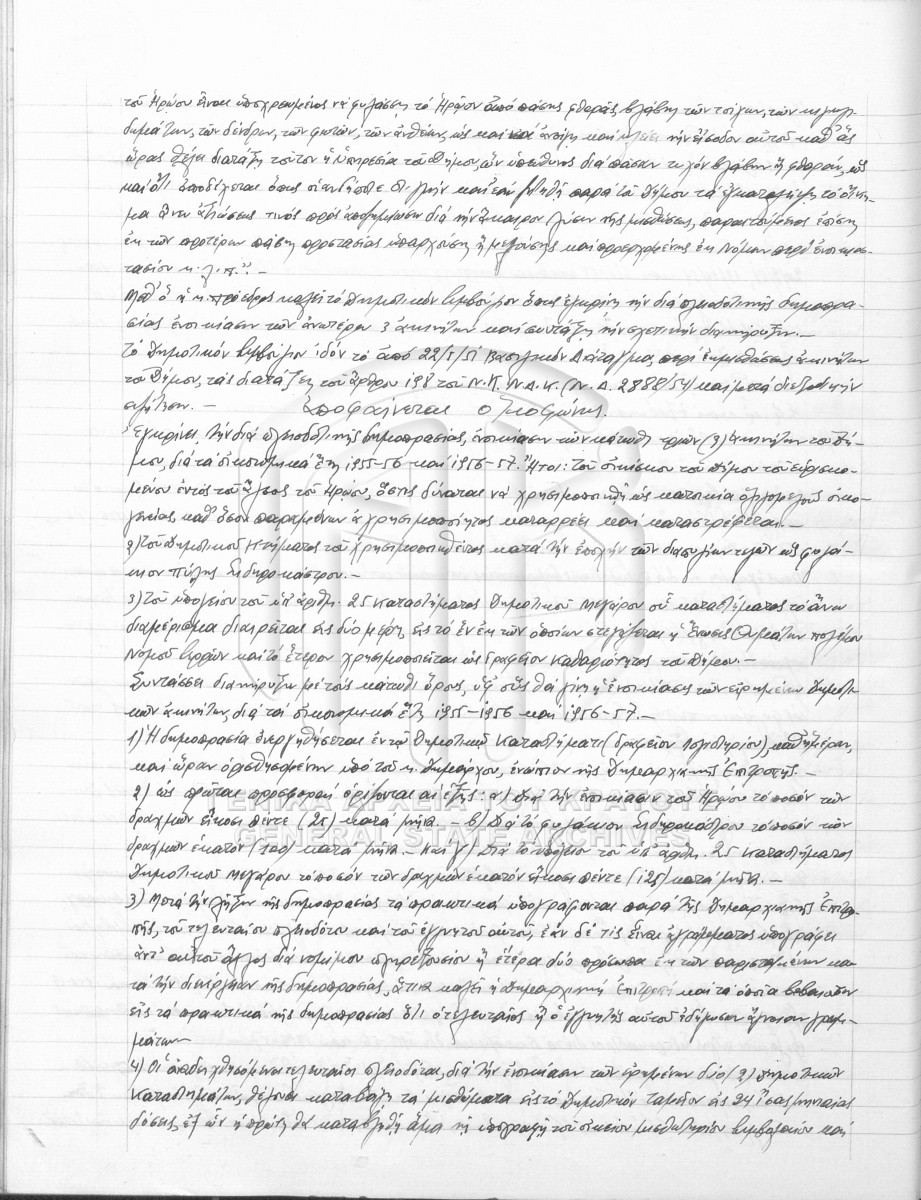 τοῦ Ἡρώου εἶναι ὑποχρεωμένος νὰ φυλάσσῃ τὸ Ἡρῶον ἀπὸ πάσης φθορᾶς, βλάβης τῶν τοίχων, τῶν κιγκλι-
δωμάτων, τῶν δένδρων, τῶν φώτων, τῶν ἀνθέων, ὡς καὶ νὰ ἀνοίγῃ καὶ κλείει τὴν εἴσοδον αὐτοῦ καθ' ἃς
ὥρας θέλει διατάξῃ τοῦτον ἡ ὑπηρεσία τοῦ Δήμου, ὢν ὑπεύθυνος διὰ πᾶσαν τυχὸν βλάβην ἢ φθοράν, ὡς
καὶ ὅτι ἀποδέχεται ὅπως οἱανδήποτε στιγμὴν καὶ ἐὰν κληθῇ παρὰ τοῦ Δήμου νὰ ἐγκαταλείψῃ τὸ οἴκη-
μα ἄνευ ἀξιώσεως τινὸς πρὸς ἀποζημίωσιν διὰ τὴν πρόωρον λύσιν τῆς μισθώσεως, παραιτούμενος ἐπίσης
ἐκ τῶν προτέρων πάσης προστασίας ὑπαρχούσης ἢ μελλούσης καὶ προερχομένης ἐκ Νόμων περὶ ἐνοικιο-
στασίου κ.λ.π." -
Μεθ' ὃ ὁ κ. Πρόεδρος καλεῖ τὸ Δημοτικὸν Συμβούλιον ὅπως ἐγκρίνῃ τὴν διὰ πλειοδοτικῆς δημοπρα-
σίας ἐνοικίασιν τῶν ἀνωτέρω 3 ἀκινήτων καὶ συντάξῃ τὴν σχετικὴν διακήρυξιν. -
Τὸ Δημοτικὸν Συμβούλιον ἰδὸν τὸ ἀπὸ 22/5/51 Βασιλικὸν Διάταγμα περὶ ἐκμισθώσεως ἀκινήτων
τοῦ Δήμου, τὰς διατάξεις τοῦ ἄρθρου 198 τοῦ Ν.Κ. Ν.Δ.Κ. (Ν.Δ. 2888/54) καὶ μετὰ διεξοδικὴν
συζήτησιν. - Ἀποφαίνεται ὁμοφώνως.
Ἐγκρίνει τὴν διὰ πλειοδοτικῆς δημοπρασίας, ἐνοικίασιν τῶν κάτωθι τριῶν (3) ἀκινήτων τοῦ Δή-
μου, διὰ τὰ οἰκονομικὰ ἔτη 1955-56 καὶ 1956-57. Ἤτοι: Τοῦ οἰκίσκου τοῦ Δήμου τοῦ εὑρισκο-
μένου ἐντὸς τοῦ ἄλσους τοῦ Ἡρώου, ὅστις δύναται νὰ χρησιμοποιηθῇ ὡς κατοικία ὀλιγομελοῦς οἰκο-
γενείας, καθ' ὅσον παραμένων ἀχρησιμοποίητος καταρρέει καὶ καταστρέφεται. -
2) Τοῦ Δημοτικοῦ Κτήματος τοῦ χρησιμοποιηθέντος κατὰ τὴν ἐποχὴν τῶν διαπυλίων τελῶν ὡς φυλά-
κιον Πύλης Σιδηροκάστρου. -
3) Τοῦ ὑπογείου τοῦ ὑπ' ἀριθμ. 25 Καταστήματος Δημοτικοῦ Μεγάρου οὗ καταστήματος τὸ ἄνω
διαμέρισμα διαιρεῖται εἰς δύο μέρη, εἰς τὸ ἓν ἐκ τῶν ὁποίων στεγάζεται ἡ Ἕνωσις Θυμάτων πολέμου
Νομοῦ Σερρῶν καὶ τὸ ἕτερον χρησιμοποιεῖται ὡς Γραφεῖον Καθαριότητος τοῦ Δήμου. -
Συντάσσει διακήρυξιν μὲ τοὺς κάτωθι ὅρους, ὑφ' οὓς θὰ γίνῃ ἡ ἐνοικίασις τῶν εἰρημένων Δημοτι-
κῶν ἀκινήτων, διὰ τὰ οἰκονομικὰ ἔτη 1955-1956 καὶ 1956-57. -
1) Ἡ δημοπρασία ἐνεργηθήσεται ἐν τῷ Δημοτικῷ Καταστήματι (Γραφεῖον Λογιστηρίου), καθ' ἡμέραν,
καὶ ὥραν ὁρισθησομένην ὑπὸ τοῦ κ. Δημάρχου, ἐνώπιον τῆς Δημαρχιακῆς Ἐπιτροπῆς. -
2) ὡς πρῶται προσφοραὶ ὁρίζονται αἱ ἑξῆς: α) Διὰ τὴν ἐνοικίασιν τοῦ Ἡρώου τὸ ποσὸν τῶν
δραχμῶν εἴκοσι πέντε (25) κατὰ μῆνα. - β) Διὰ τὸ φυλάκιον Σιδηροκάστρου τὸ ποσὸν τῶν
δραχμῶν ἑκατὸν (100) κατὰ μῆνα. - Καὶ γ) Διὰ τὸ ὑπόγειον τοῦ ὑπ' ἀριθμ. 25 Καταστήματος
Δημοτικοῦ Μεγάρου τὸ ποσὸν τῶν δραχμῶν ἑκατὸν εἴκοσι πέντε (125) κατὰ μῆνα. -
3) Μετὰ τὴν λῆξιν τῆς δημοπρασίας τὰ πρακτικὰ ὑπογράφονται παρὰ τῆς Δημαρχιακῆς Ἐπιτρο-
πῆς, τοῦ τελευταίου πλειοδότου καὶ τοῦ ἐγγυητοῦ αὐτοῦ, ἐὰν δέ τις εἶναι ἀγράμματος ὑπογράφει
ἀντ' αὐτοῦ ἄλλος διὰ νομίμου πληρεξουσίου ἢ ἕτερα δύο πρόσωπα ἐκ τῶν παρισταμένων κα-
τὰ τὴν διενέργειαν τῆς δημοπρασίας, ἅτινα καλεῖ ἡ Δημαρχιακὴ Ἐπιτροπὴ καὶ τὰ ὁποῖα βεβαιοῦν
εἰς τὰ πρακτικὰ τῆς δημοπρασίας ὅτι ὁ τελευταῖος ἢ ὁ ἐγγυητὴς αὐτοῦ ἐδήλωσεν ἄγνοιαν γραμ-
μάτων
4) Οἱ ἀναδειχθησόμενοι τελευταῖοι πλειοδόται, διὰ τὴν ἐνοικίασιν τῶν εἰρημένων δύο (2) Δημοτικῶν
Καταστημάτων, θέλουσι καταβάλῃ τὰ μισθώματα εἰς τὸ Δημοτικὸν Ταμεῖον εἰς 24 ἴσας μηνιαίας
δόσεις, ἐξ ὧν ἡ πρώτη θὰ καταβληθῇ ἅμα τῇ ὑπογραφῇ τοῦ οἰκείου μισθωτηρίου συμβολαίου καὶ
ΓΕΝΙΚΑ ΑΡΧΕΙΑ ΤΟΥ ΚΡΑΤΟΥΣ
GENERAL STATE ARCHIVES